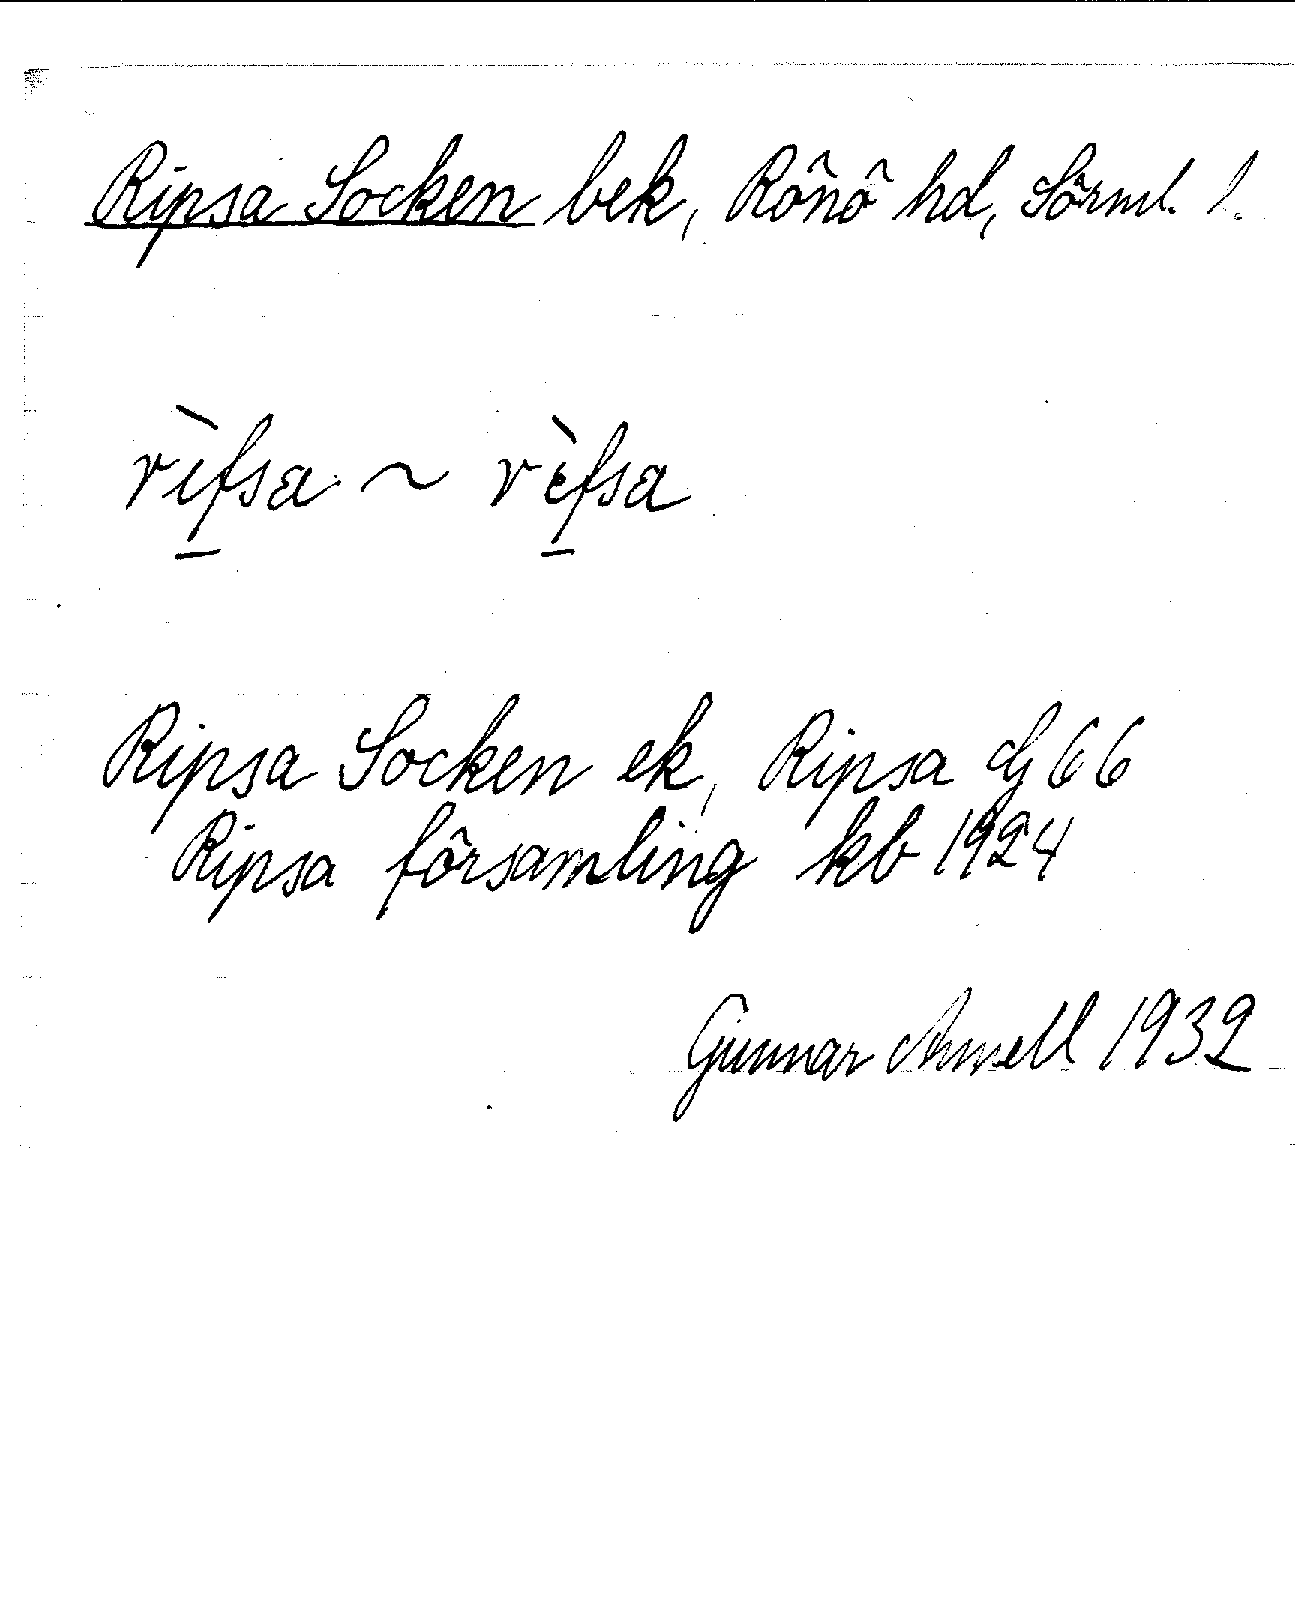 Ripsa Socken bek, Rönö hd, Sörml. l.
rìfsa ~ rèfsa
Ripsa Socken ek, Ripsa dj 66
Ripsa församling kb 1924
Gunnar Amell 1932